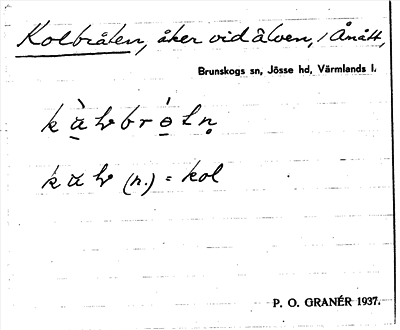 Kolbråten, åker vid älven, i Ånätt,
Brunskogs sn, Jösse hd, Värmlands l.
(n.) = kol
P. O. GRANÉR 1937.